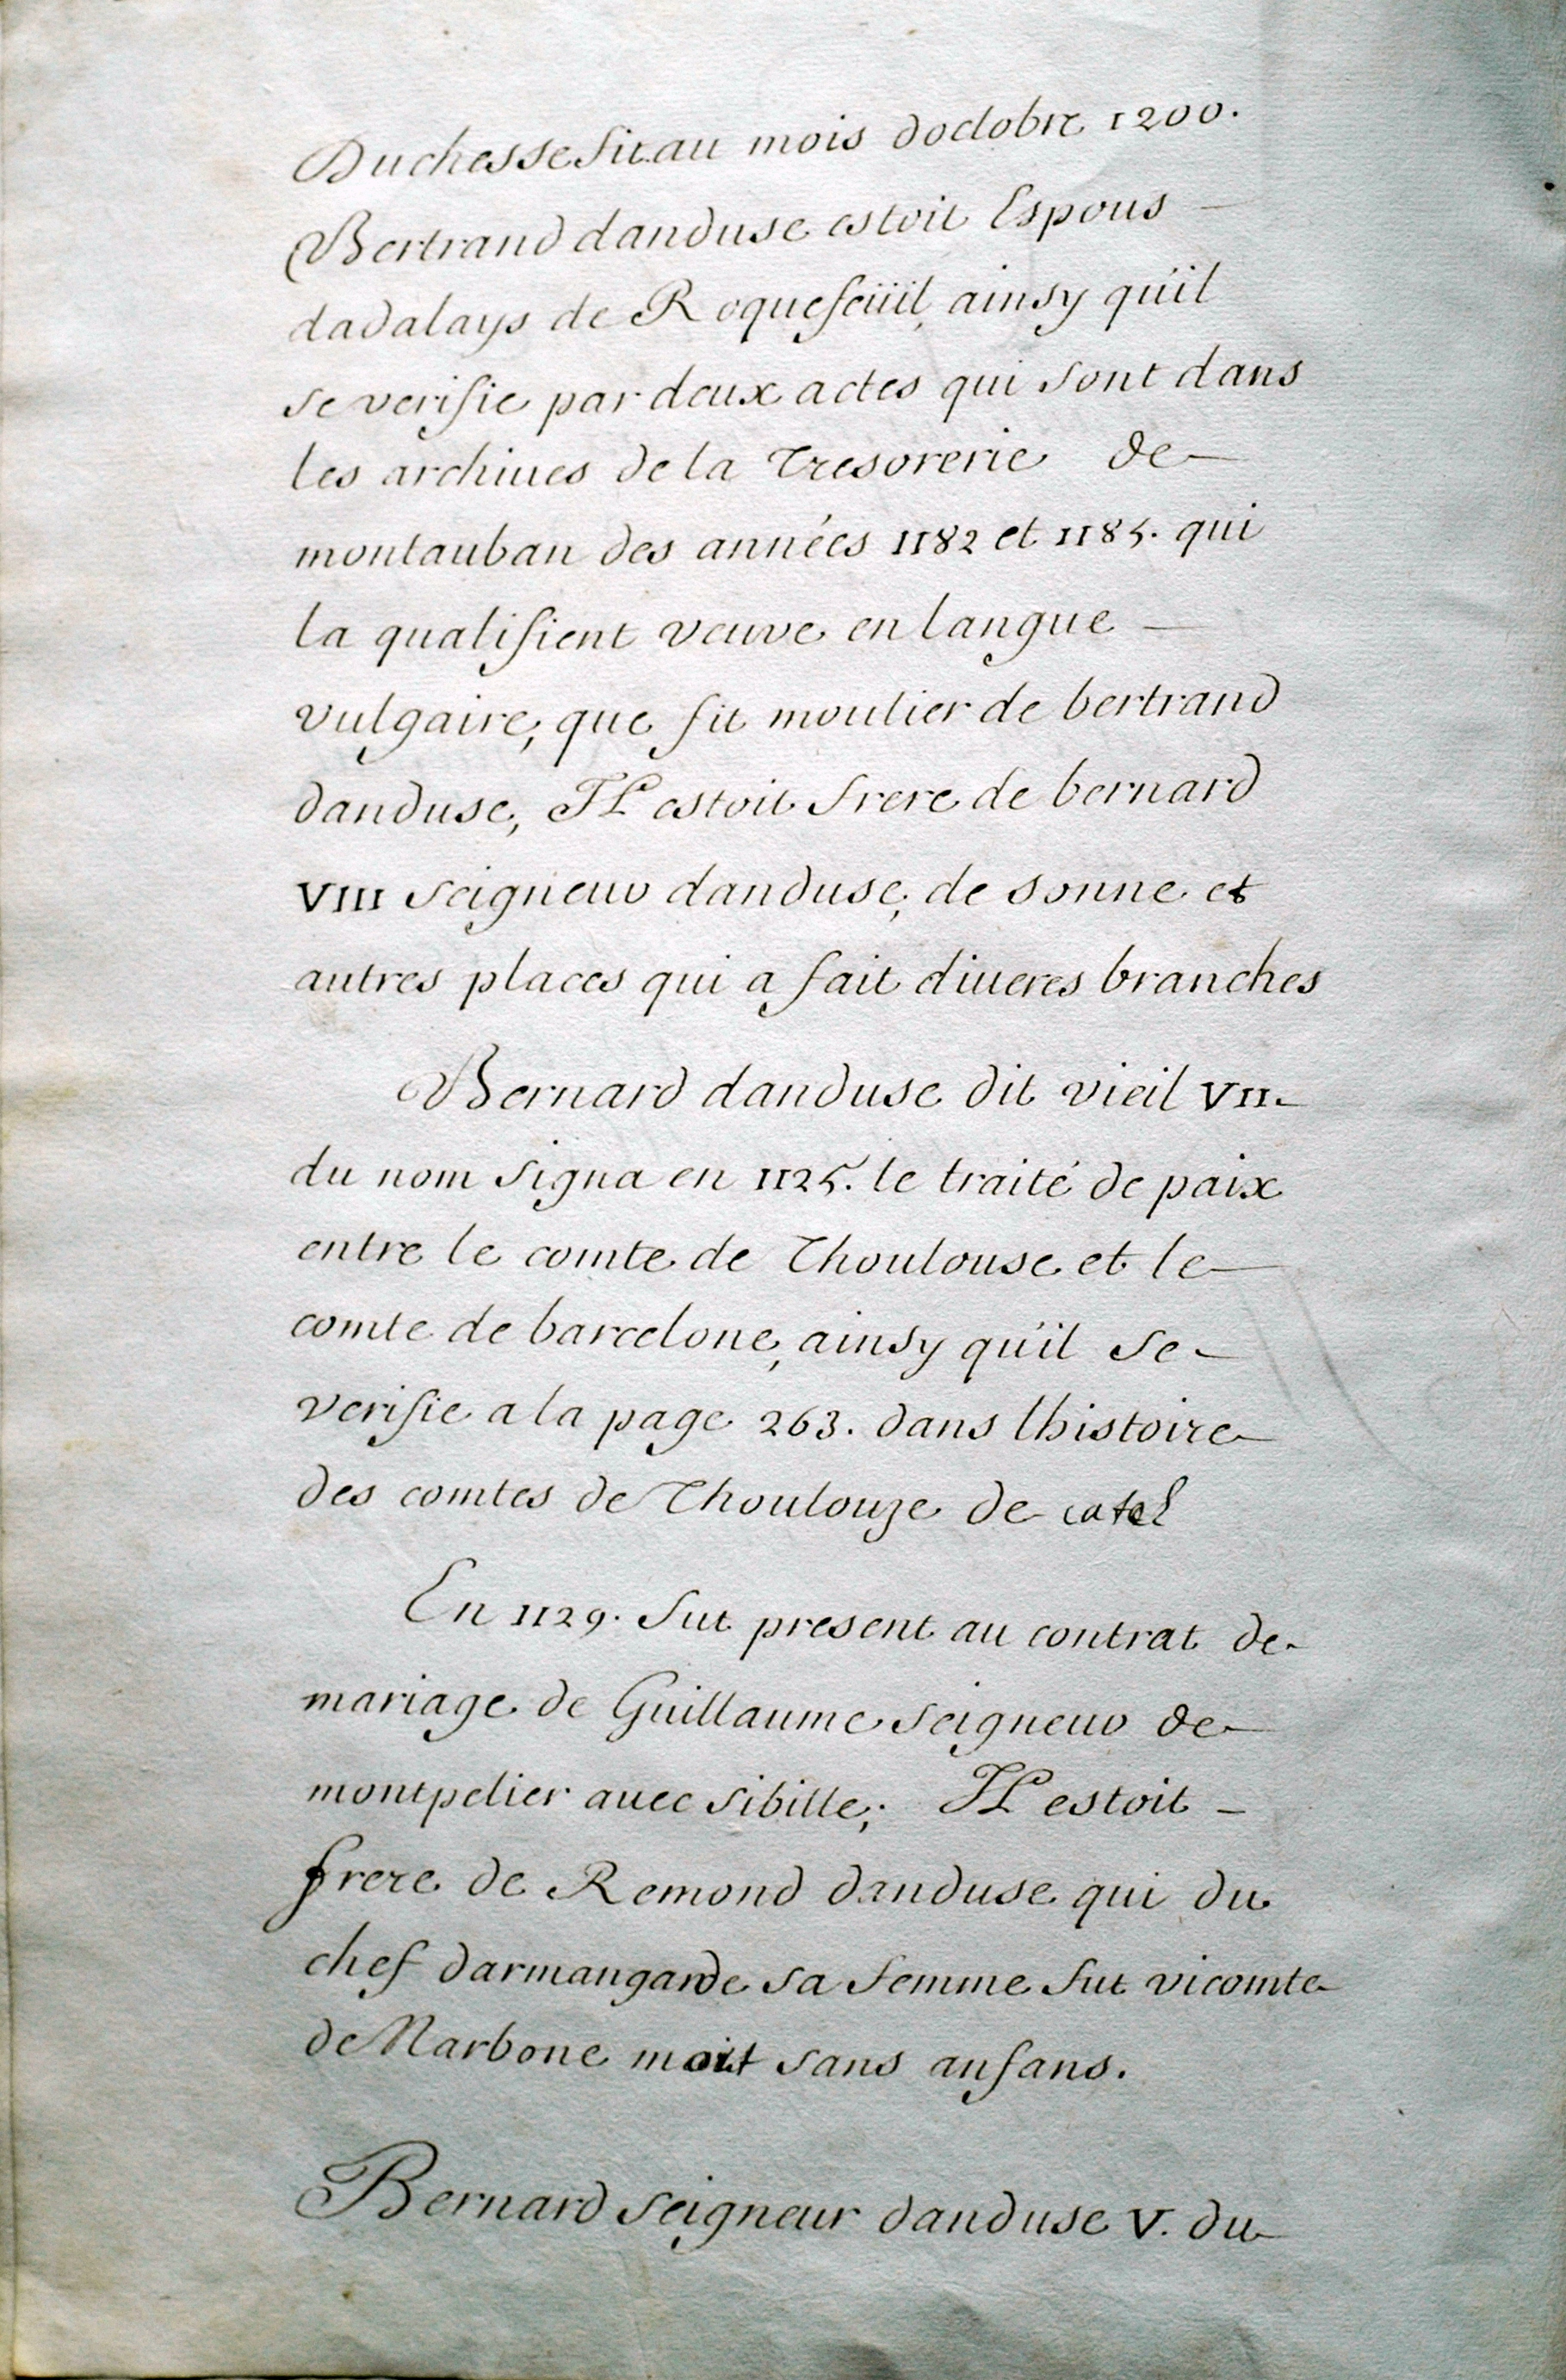 Duchesse fit au mois doctobre 1200.
Bertrand danduse estoit Espous
dadalays de Roquefeüil, ainsy qu'il
se verifie par deux actes qui sont dans
les archiues de la Tresorerie de
montauban des années 1182 et 1185. qui
la qualifient veuve en langue
vulgaire, que fit moulier de bertrand
danduse, Il estoit frere de bernard
VIII seigneur danduse, de sonne et
autres places qui a fait diueres branches
Bernard danduse dit vieil VII.
du nom signa en 1125. le traité de paix
entre le comte de Thoulouse et le
comte de barcelone, ainsy qu'il se
verifie a la page 263. dans lhistoire
des comtes de Thoulouze de catel
En 1129. fut present au contrat de
mariage de Guillaume seigneur de
montpelier auec sibille; Il estoit
frere de Remond danduse qui du
chef darmangarde sa femme fut vicomte
de Narbone mort sans anfans.
Bernard seigneur danduse V. du